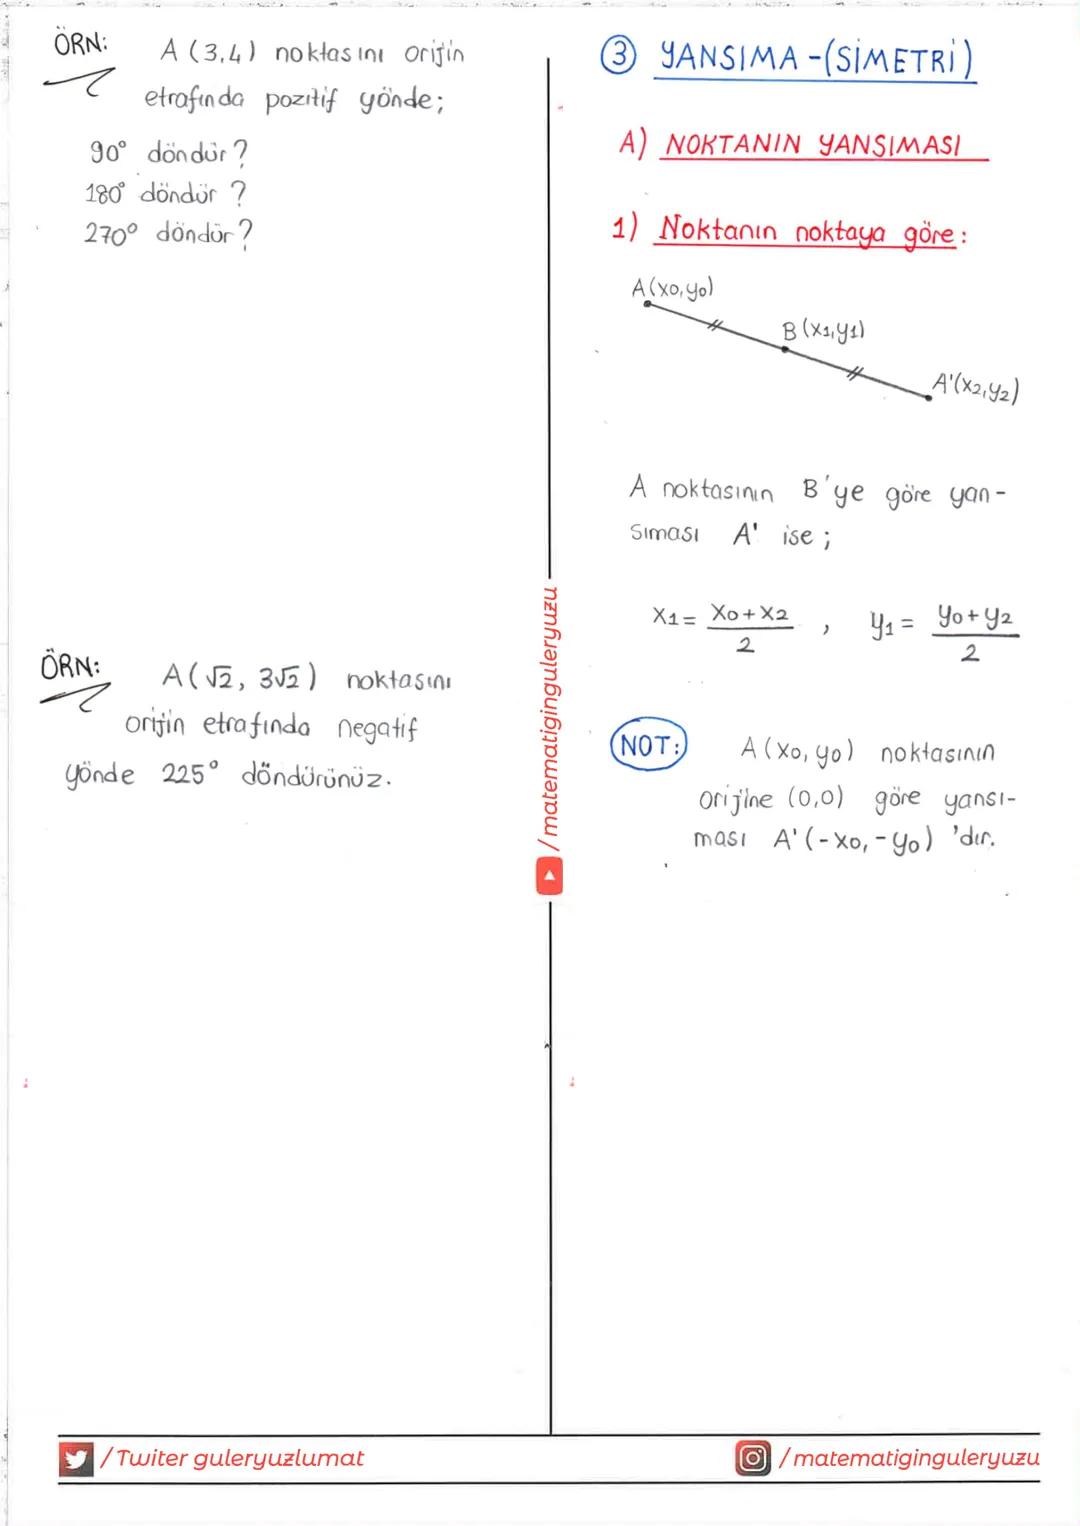 ÖRN:
A (3,4) noktasını orijin
etrafında pozitif yönde;
90° döndür?
180° döndür ?
270° döndür?
ÖRN:
A(√2, 3√2) noktasını
orijin etrafında negatif
yönde 225° döndürünüz.
/matematiginguleryuzu
③ YANSIMA -(SİMETRİ)
A) NOKTANIN YANSIMASI
1) Noktanın noktaya göre:
A(x0,y0)
B(x1,y1)
A'(x2,y2)
A noktasının B'ye göre yan-
sıması A' ise ;
x1 = x0+x2 / 2 , y1 = y0+y2 / 2
NOT:
A(x0,y0) noktasının
orijine (0,0) göre yansı-
ması A'(-x0,-y0) 'dır.
/Twiter guleryuzlumat
/matematiginguleryuzu